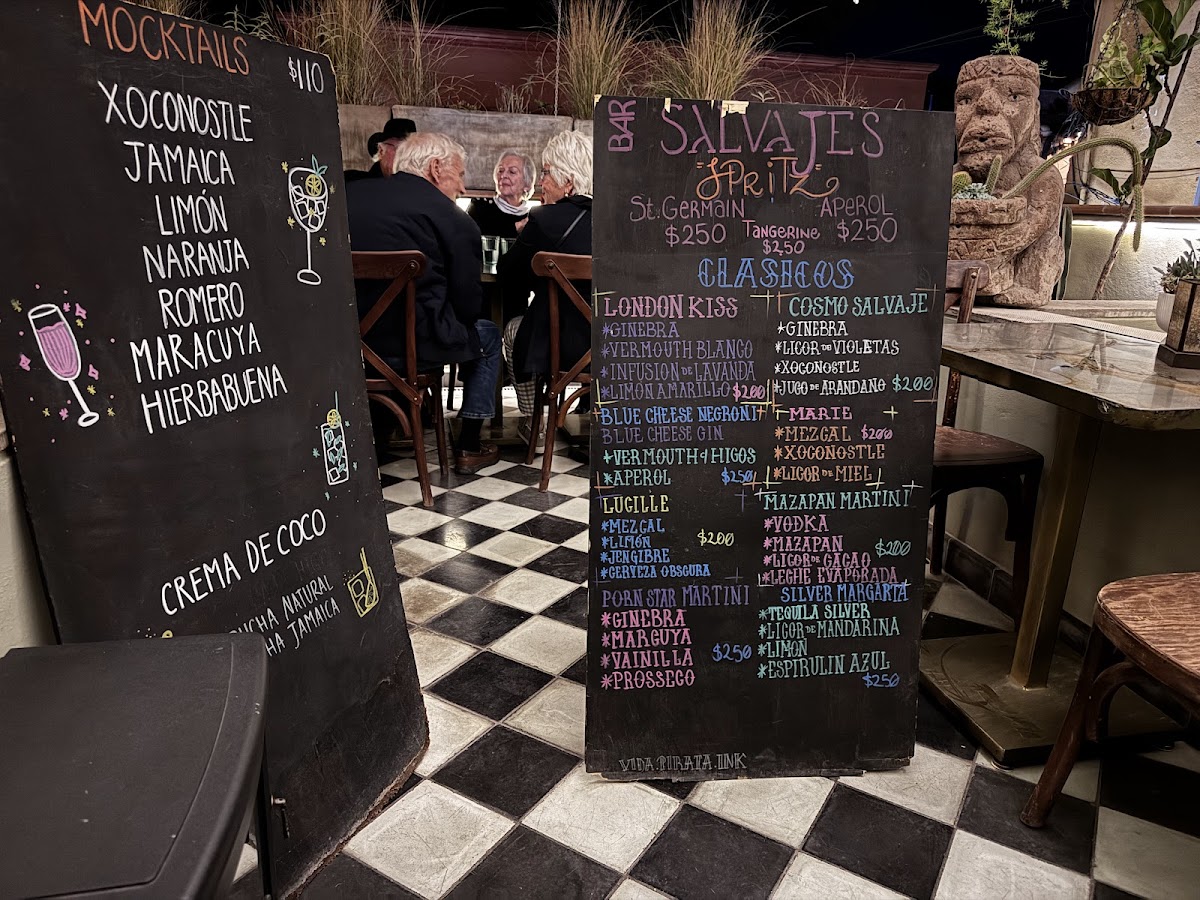 MOCKTAILS
$110
XOCONOSTLE
JAMAICA
LIMÓN
NARANJA
ROMERO
MARACUYA
HIERBABUENA
CREMA DE COCO
NATURAL
JAMAICA
BAR SALVAJES
"SPRITZ"
St. GERMAIN $250
TANGERINE $250
APEROL $250
CLASICOS
LONDON KISS
*GINEBRA
*VERMOUTH BLANCO
*INFUSION DE LAVANDA
*LIMON AMARILLO $200
BLUE CHEESE NEGRONI
BLUE CHEESE GIN
*VERMOUTH d HIGOS
*APEROL $250
LUCILLE
*MEZCAL
*LIMÓN $200
*JENGIBRE
*CERVEZA OBSCURA
PORN STAR MARTINI
*GINEBRA
*MARGUYA
*VAINILLA $250
*PROSSECO
COSMO SALVAJE
*GINEBRA
*LICOR DE VIOLETAS
*XOCONOSTLE
*JUGO DE ARANDANO $200
MARIE
*MEZCAL $200
*XOCONOSTLE
*LICOR DE MIEL
MAZAPAN MARTINI
*VODKA
*MAZAPAN $200
*LICOR DE CACAO
*LECHE EVAPORADA
SILVER MARGARTA
*TEQUILA SILVER
*LICOR DE MANDARINA
*LIMON
*ESPIRULIN AZUL
$250
VIDA.PIRATA.INK